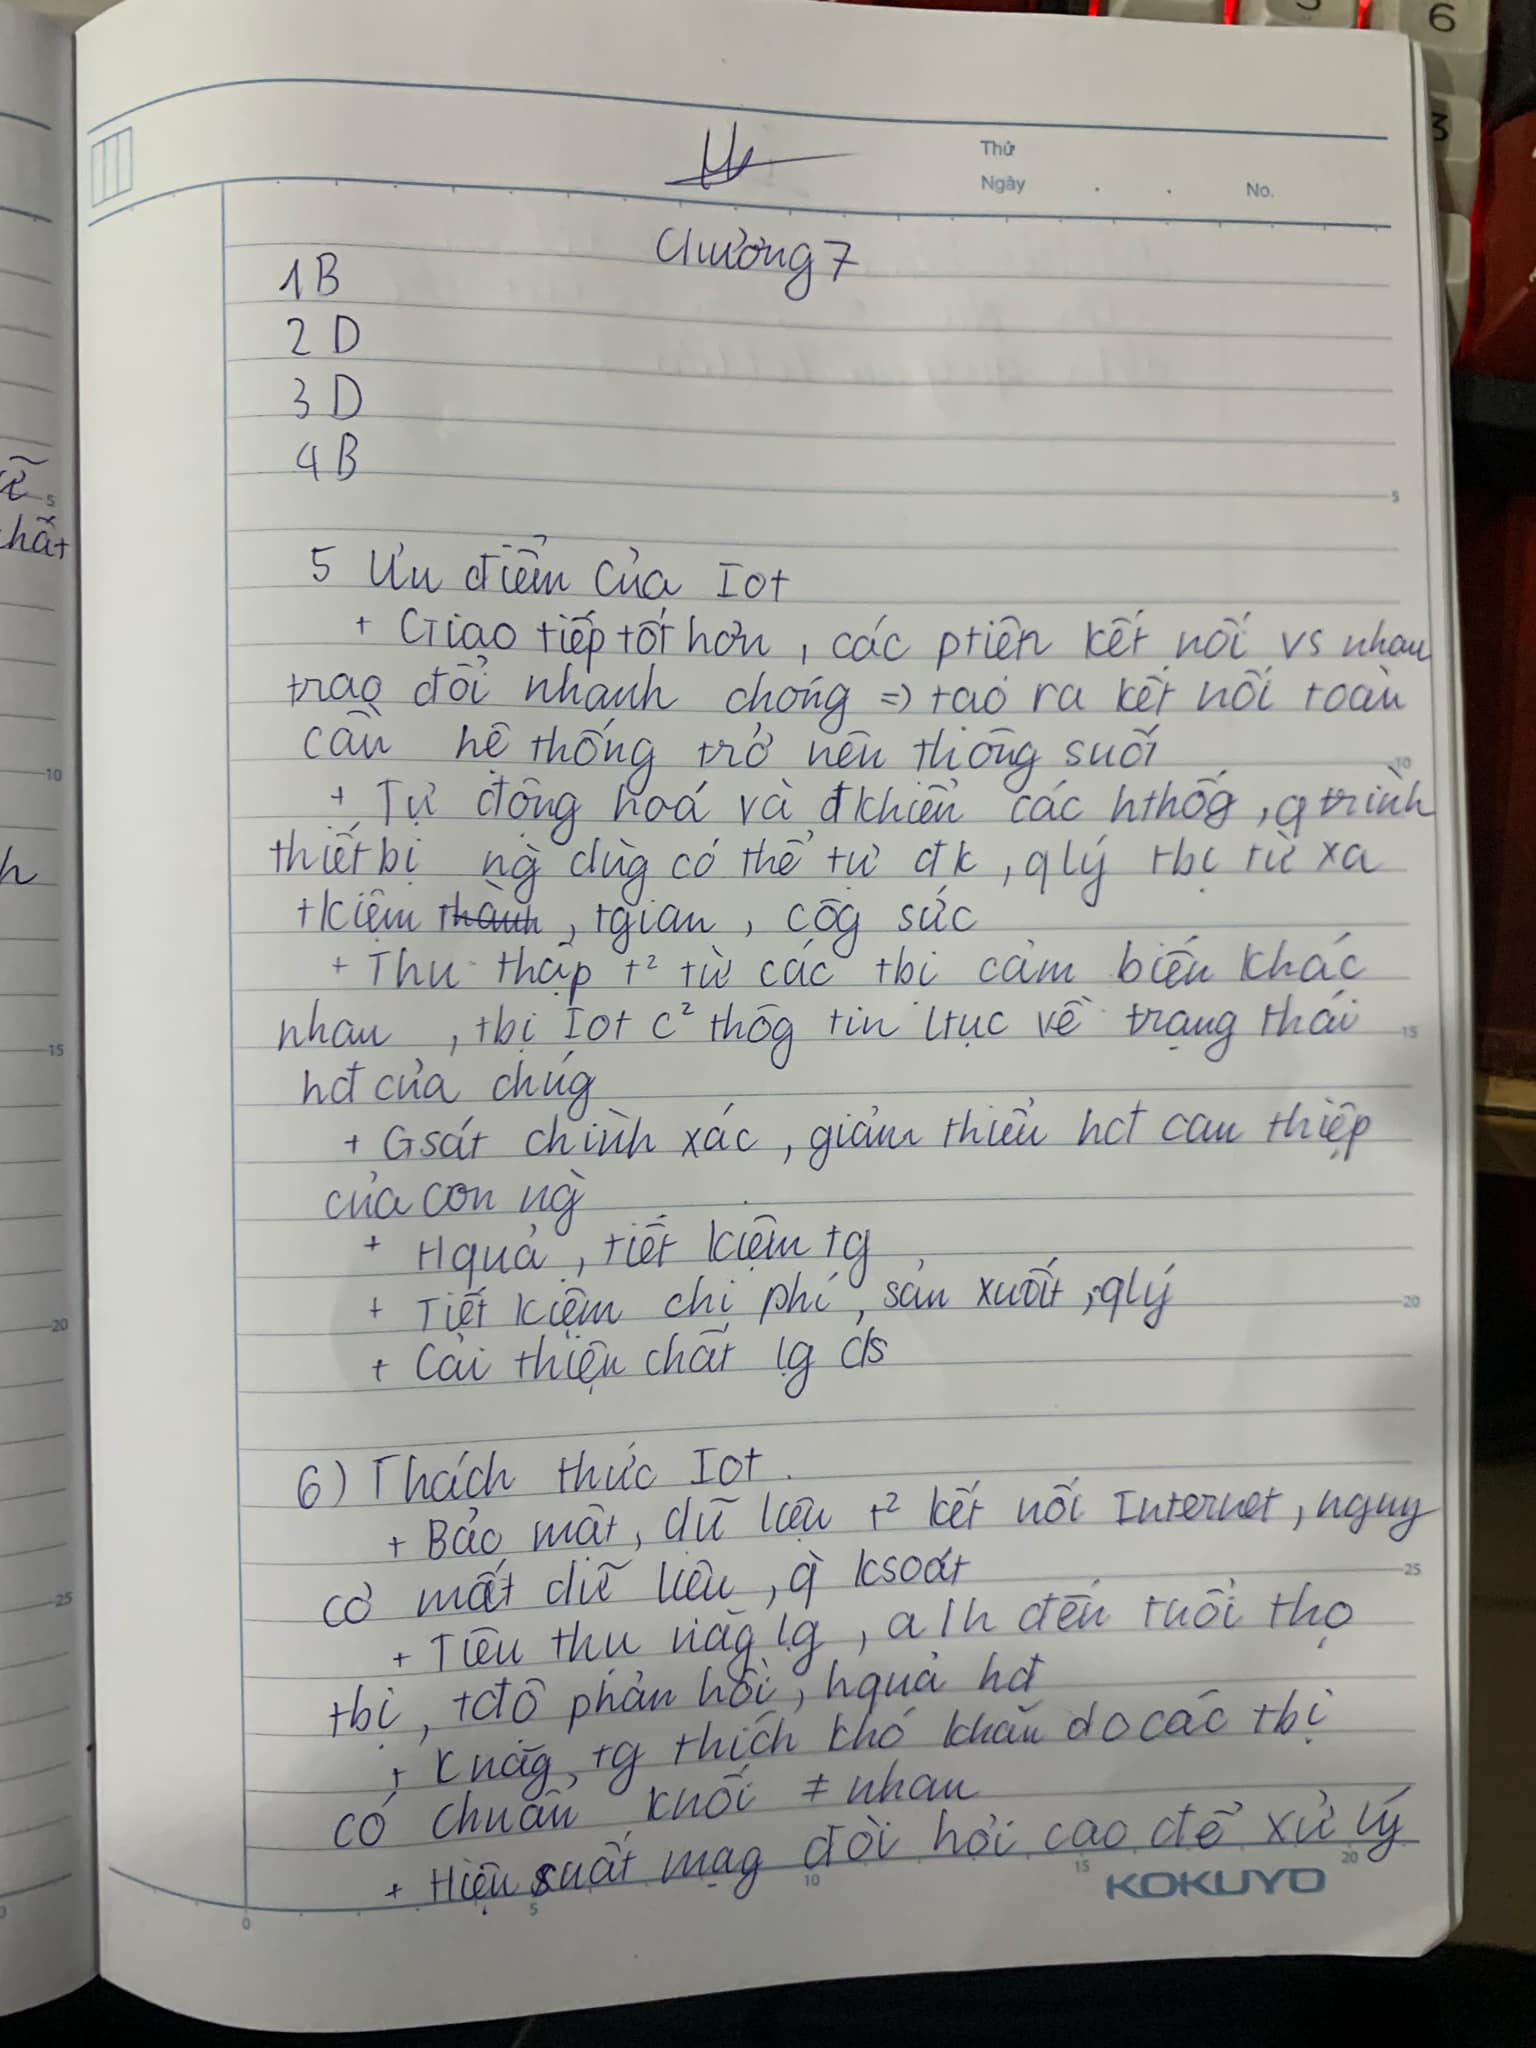 6
3
Thứ
Ngày . . No.
Chương 7
1 B
2 D
3 D
4 B
5 Ưu điểm của Iot
+ Giao tiếp tốt hơn, các ptiện kết nối vs nhau
trao đổi nhanh chóng => tạo ra kết nối toàn
cầu hệ thống trở nên thông suốt
+ Tự động hoá và đkhiển các hthốg, qtrình
thiết bị ng` dùg có thể tự đk, qlý tbị từ xa
tkiệm thành, tgian, côg sức
+ Thu thập t² từ các tbị cảm biến khác
nhau, tbị Iot c² thôg tin ltục về trạng thái
hđ của chúg
+ Gsát chính xác, giảm thiểu hđ can thiệp
của con ng`
+ Hquả, tiết kiệm tg
+ Tiết kiệm chi phí, sản xuất, qlý
+ Cải thiện chất lg đs
6) Thách thức Iot.
+ Bảo mật, dữ liệu t² kết nối Internet, nguy
cơ mất dữ liệu, q` ksoát
+ Tiêu thụ năg lg, a/h đến tuổi thọ
tbị, tđộ phản hồi, hquả hđ
+ Knăg, tg thích khó khăn do các tbị
có chuẩn knối ≠ nhau
+ Hiệu suất mạg đòi hỏi cao để xử lý
KOKUYO